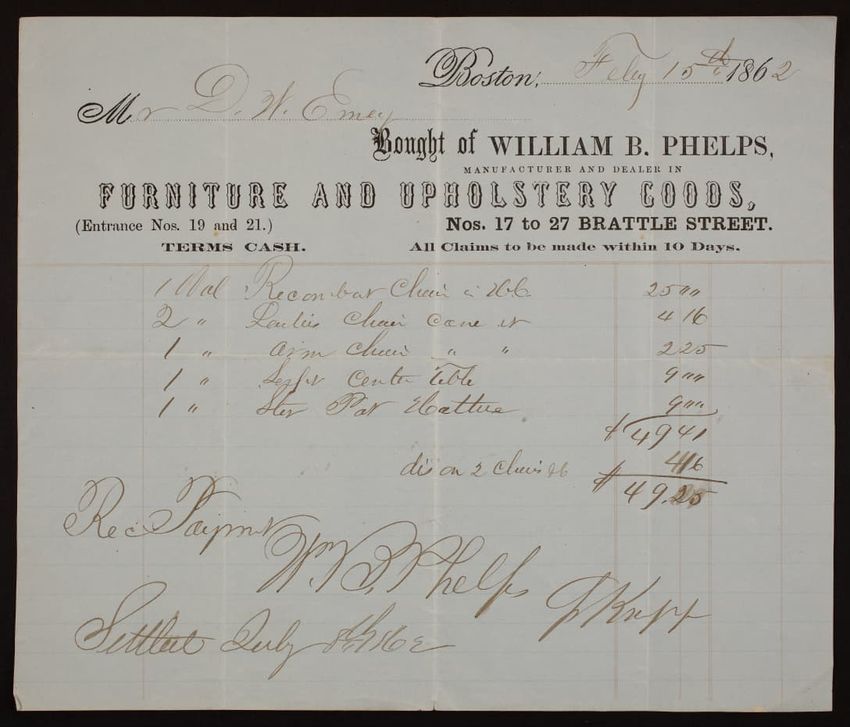 Boston, Feby 15th 1862
Mr D. W. Emey
Bought of WILLIAM B. PHELPS,
MANUFACTURER AND DEALER IN
FURNITURE AND UPHOLSTERY GOODS,
(Entrance Nos. 19 and 21.) Nos. 17 to 27 BRATTLE STREET.
TERMS CASH. All Claims to be made within 10 Days.
1 Wal Chair 25 " "
2 " Chair Cane 4 16
1 " Arm Chair " " 2 25
1 " Center Table 9 " "
1 " 9 " "
$ 49 41
on 2 Chairs
$ 49.25
Rec Paymt
Wm B. Phelps
Settled July